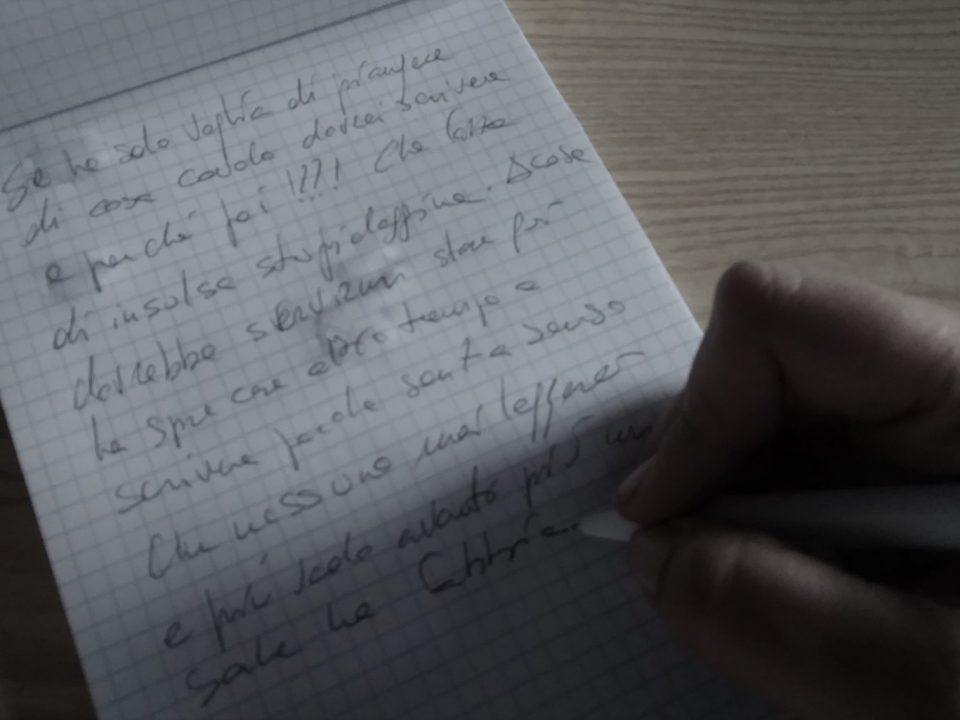 Se ho solo voglia di piangere
di cosa cavolo dovrei scrivere
e perché poi !!?! Che razza
di insulse stupidaggine. A cosa
dovrebbe servirmi stare qui
ha sprecare altro tempo e
scrivere parole senza senso
Che nessuno mai leggerà
e più vado avanti più mi
sale la